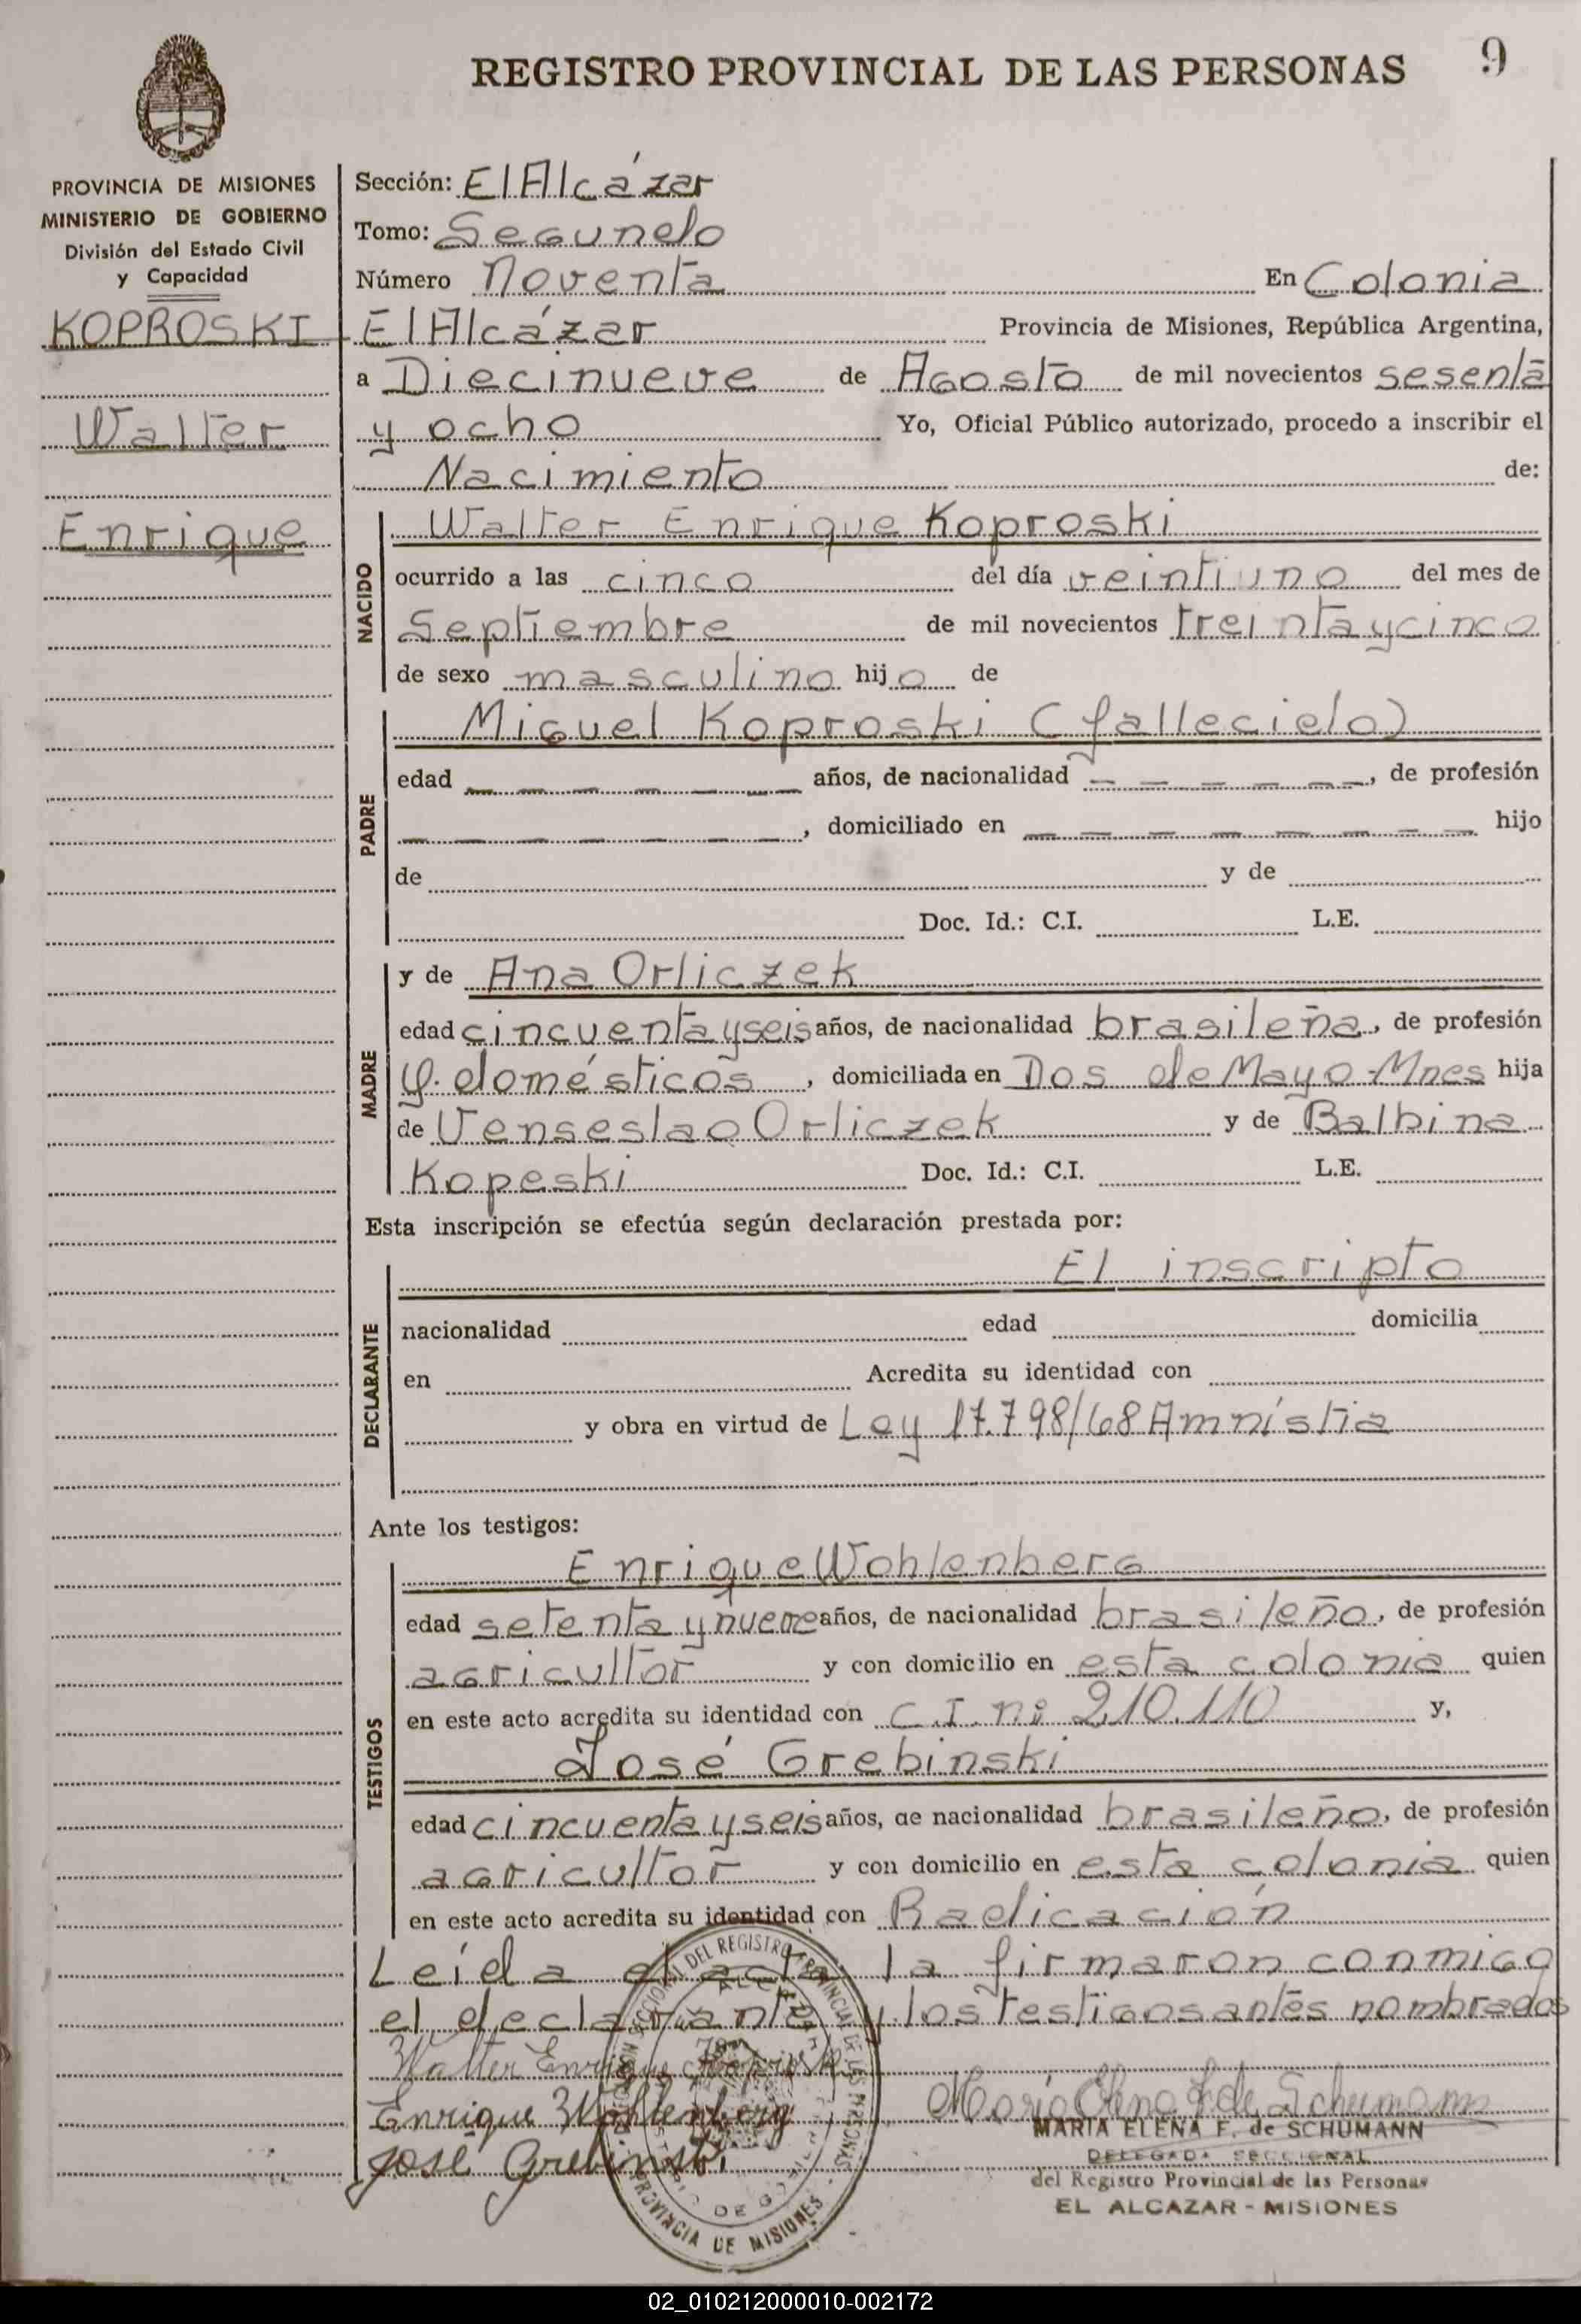 REGISTRO PROVINCIAL DE LAS PERSONAS 9
PROVINCIA DE MISIONES
MINISTERIO DE GOBIERNO
División del Estado Civil
y Capacidad
KOPROSKI
Walter
Enrique
Sección: El Alcázar
Tomo: Segundo
Número Noventa En Colonia
El Alcázar Provincia de Misiones, República Argentina,
a Diecinueve de Agosto de mil novecientos sesenta
y ocho Yo, Oficial Público autorizado, procedo a inscribir el
Nacimiento de:
NACIDO
Walter Enrique Koproski
ocurrido a las cinco del día veintiuno del mes de
Septiembre de mil novecientos treinta y cinco
de sexo masculino hijo de
PADRE
Miguel Koproski (fallecido)
edad — — — — — — años, de nacionalidad — — — — — , de profesión
— — — — — — — , domiciliado en — — — — — — — — hijo
de y de
Doc. Id.: C.I. L.E.
MADRE
y de Ana Orliczek
edad cincuenta y seis años, de nacionalidad brasileña, de profesión
q. domésticos, domiciliada en Dos de Mayo-Mnes hija
de Venseslao Orliczek y de Balbina
Kopeski Doc. Id.: C.I. L.E.
Esta inscripción se efectúa según declaración prestada por:
DECLARANTE
El inscripto
nacionalidad edad domicilia
en Acredita su identidad con
y obra en virtud de Ley 17.798/68 Amnístia
Ante los testigos:
TESTIGOS
Enrique Wohlenberg
edad setenta y nueve años, de nacionalidad brasileño, de profesión
agricultor y con domicilio en esta colonia quien
en este acto acredita su identidad con C.I. nº 210.110 y,
José Grebinski
edad cincuenta y seis años, de nacionalidad brasileño, de profesión
agricultor y con domicilio en esta colonia quien
en este acto acredita su identidad con Radicación
Leída el acta la firmaron conmigo
el declarante y los testigos antes nombrados
Walter Enrique Koproski
Enrique Wohlenberg
José Grebinski
MARIA ELENA F. de SCHUMANN
DELEGADA SECCIONAL
del Registro Provincial de las Personas
EL ALCAZAR - MISIONES
DEL REGISTRO PROVINCIAL DE LAS PERSONAS
PROVINCIA DE MISIONES
02_010212000010-002172